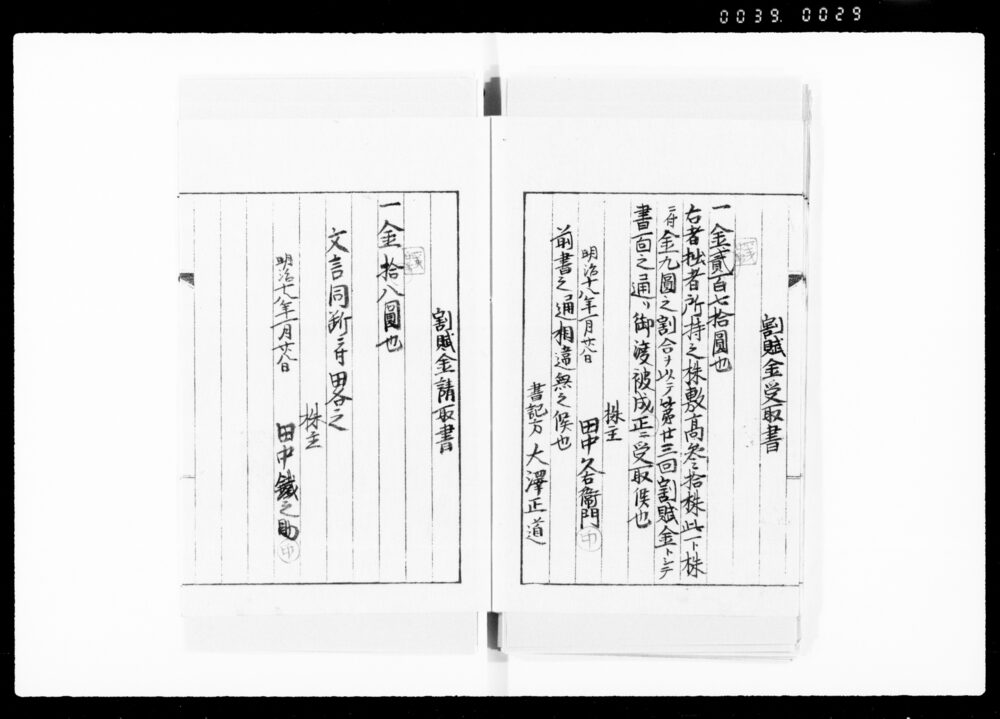 0039. 0029
割賦金受取書
一金貳百七拾圓也
右者拙者所持之株敷高參拾株此一ト株
ニ付金九圓之割合ヲ以テ第廿三回割賦金トシテ
書面之通リ御渡被成正ニ受取候也
明治十八年一月廿八日
株主
田中久右衞門 印
前書之通相違無之候也
書記方 大澤正道
割賦金請取書
一金拾八圓也
文言同断ニ付畧之
明治十八年一月廿八日
株主
田中鐵之助 印